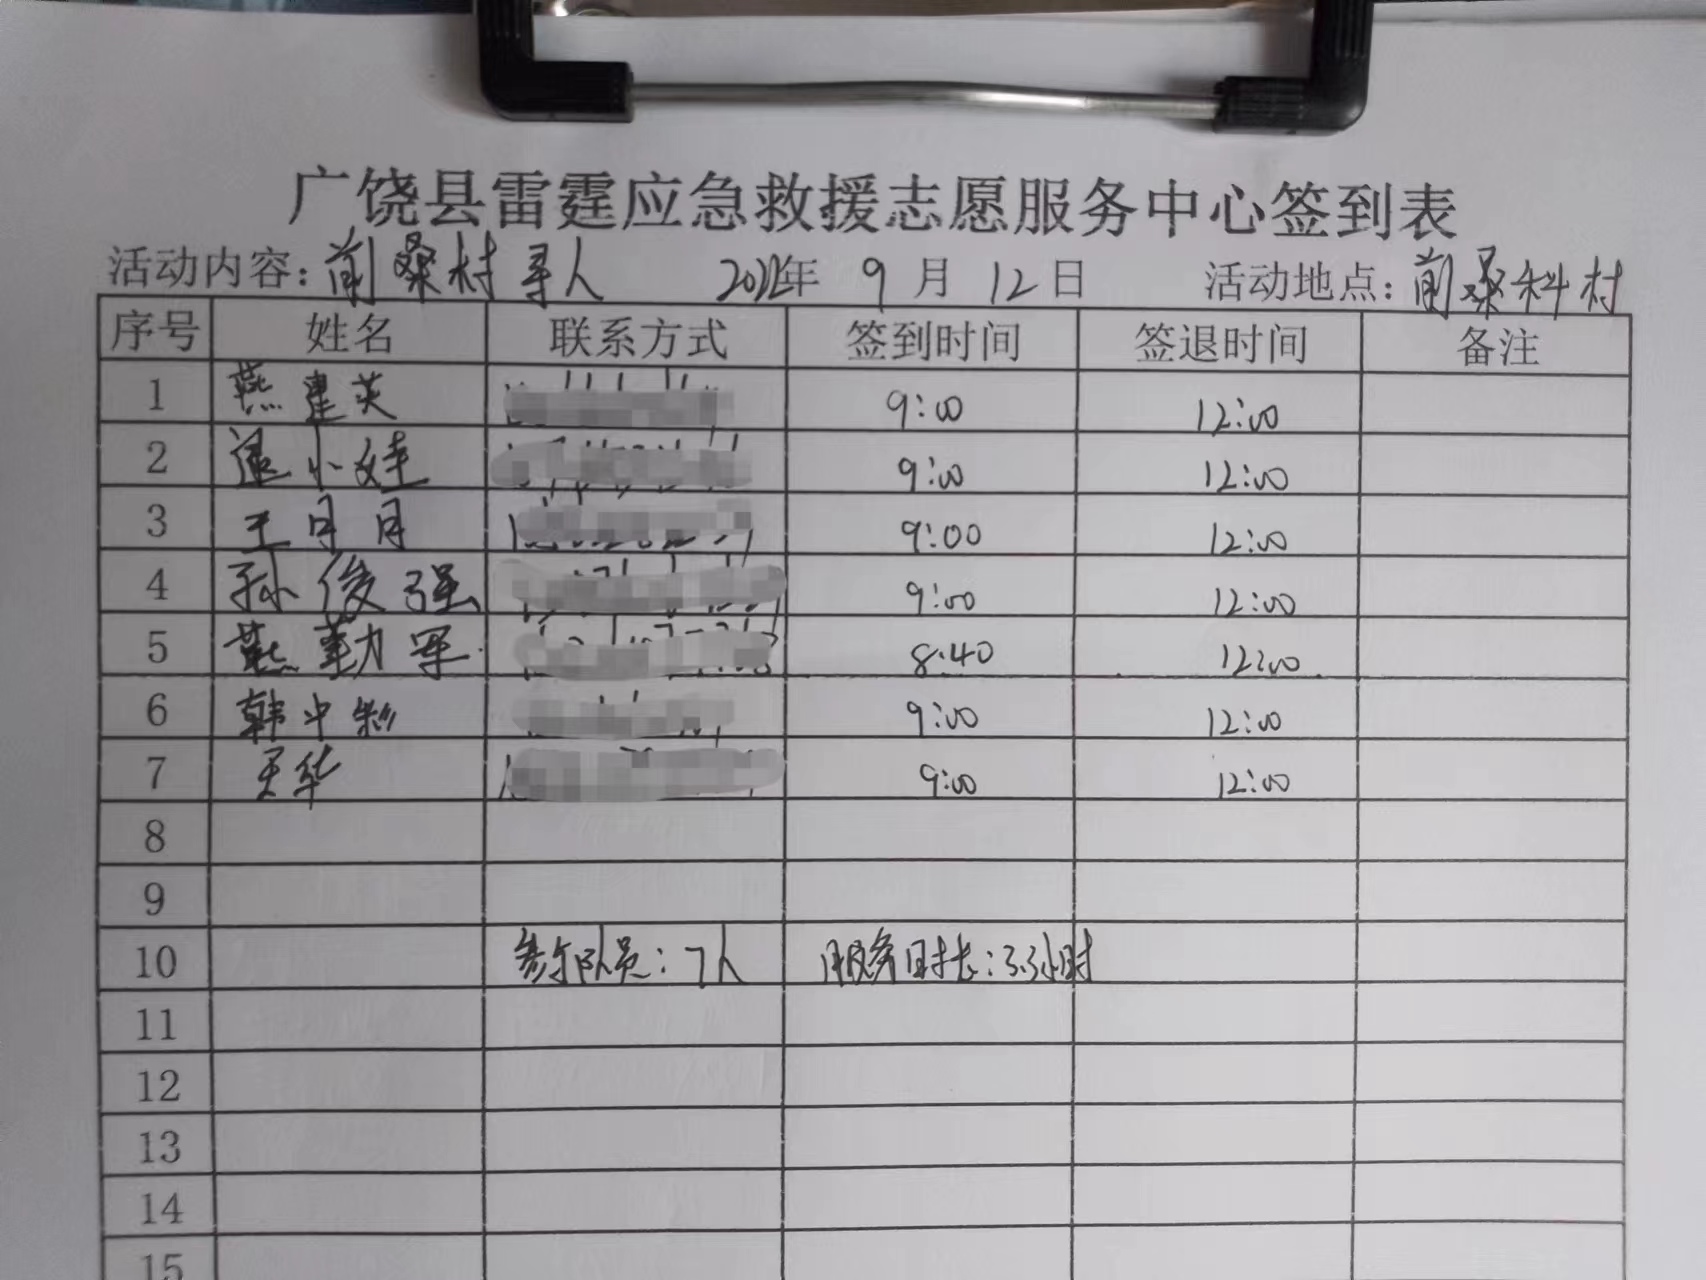 广饶县雷霆应急救援志愿服务中心签到表
活动内容：前桑村寻人 2022年 9月 12日 活动地点：前桑科村
序号 姓名 联系方式 签到时间 签退时间 备注
1 燕建英 9:00 12:00
2 小娃 9:00 12:00
3 王月月 9:00 12:00
4 孙俊强 9:00 12:00
5 燕勤军 8:40 12:00
6 韩中彩 9:00 12:00
7 王华 9:00 12:00
8
9
10 参与队员：7人 服务时长：3.3小时
11
12
13
14
15